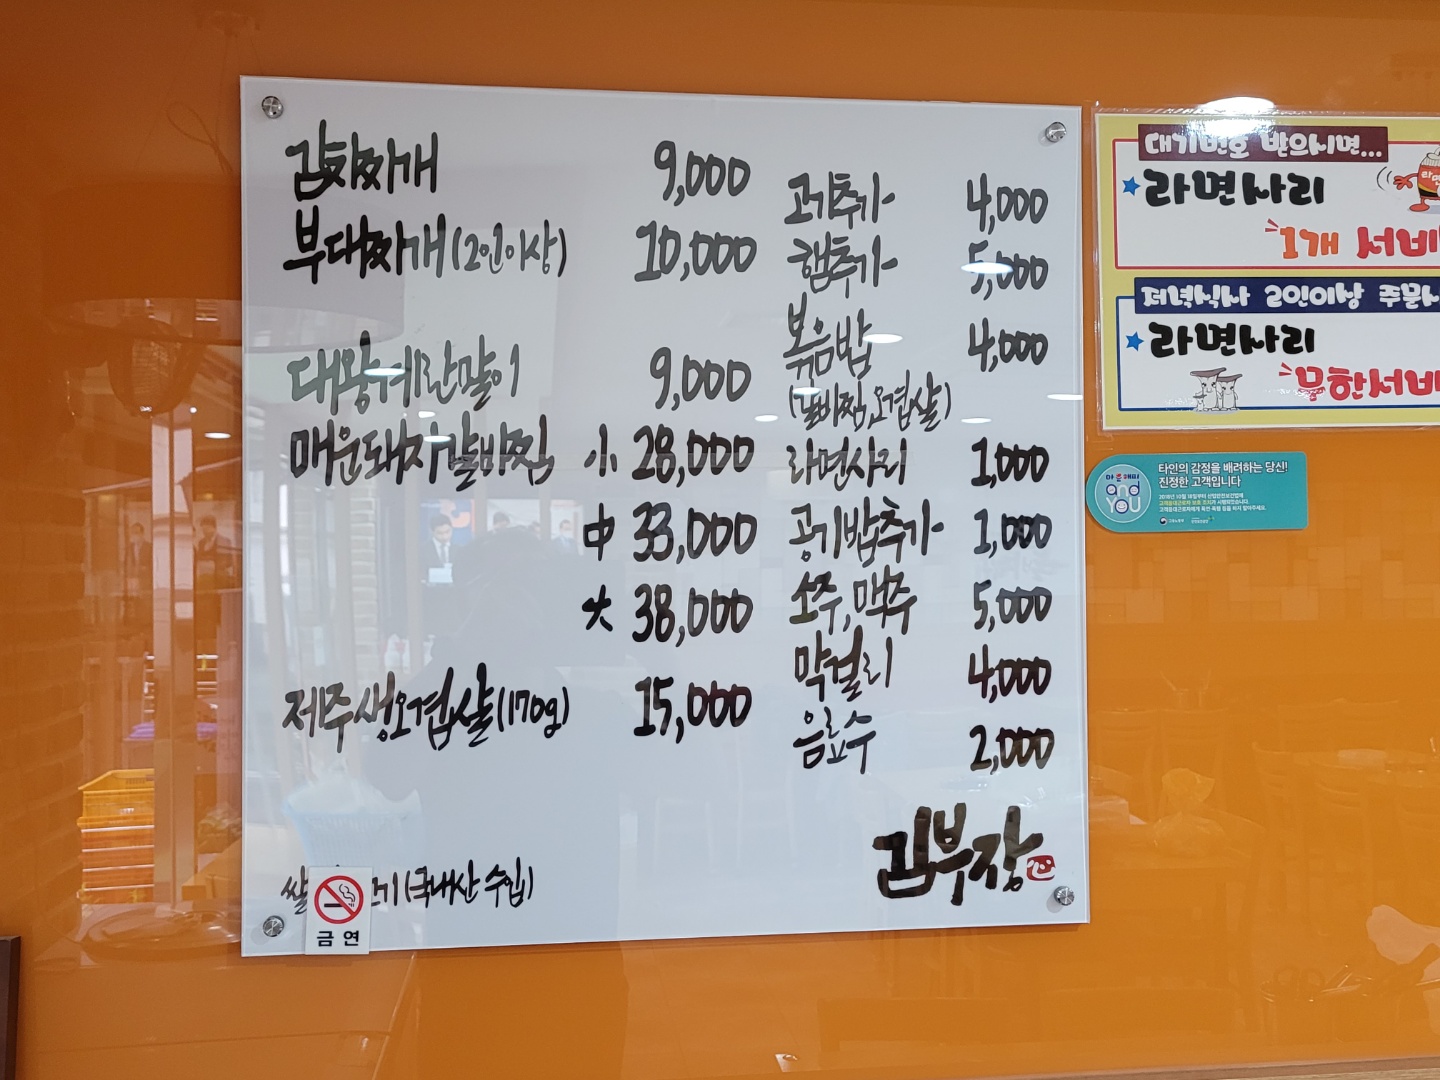 김치찌개 9,000
부대찌개(2인이상) 10,000
대왕계란말이 9,000
매운돼지갈비찜 小 28,000
中 33,000
大 38,000
제주생오겹살(170g) 15,000
쌀
기(국내산 수입)
금연
고기추가 4,000
햄추가 5,000
볶음밥 4,000
(갈비찜,오겹살)
라면사리 1,000
공기밥추가 1,000
소주, 맥주 5,000
막걸리 4,000
음료수 2,000
김부장
대기번호 받으시면...
라면사리
1개 서비
저녁식사 2인이상 주문시
라면사리
무한서비
and YOU
타인의 감정을 배려하는 당신!
진정한 고객입니다